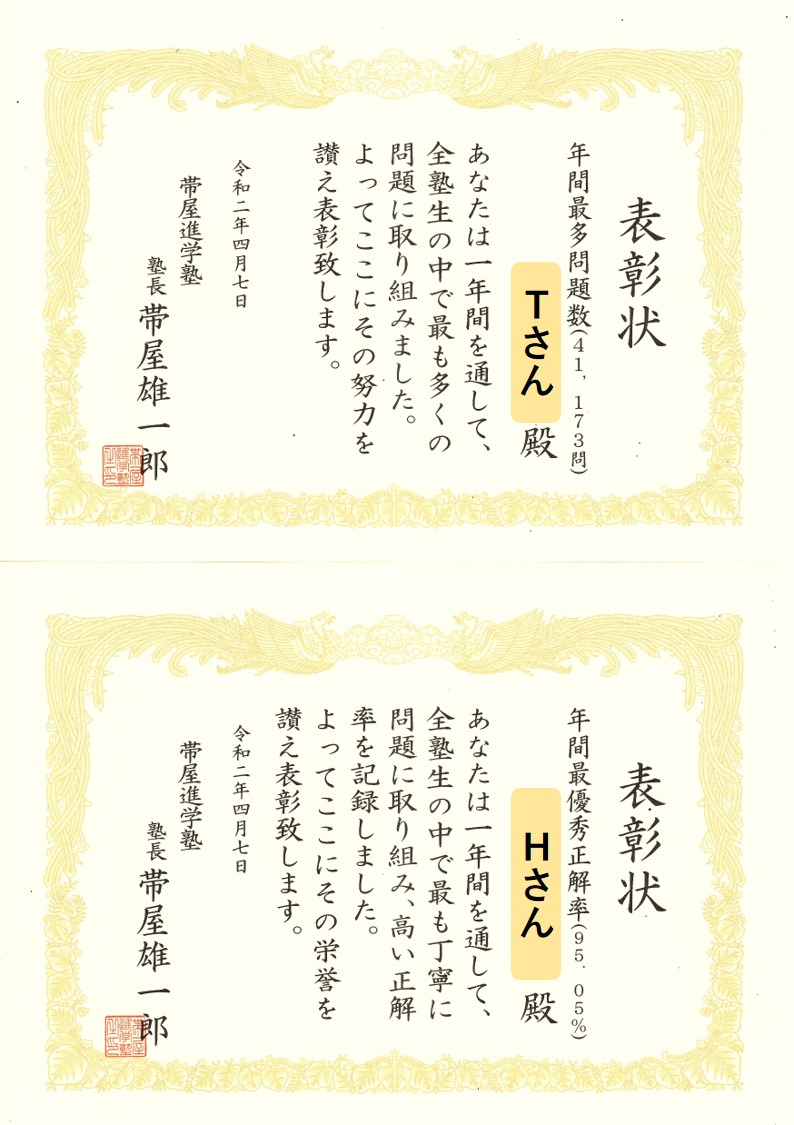 表彰状
年間最多問題数(41,173問)
Tさん 殿
あなたは一年間を通して、
全塾生の中で最も多くの
問題に取り組みました。
よってここにその努力を
讃え表彰致します。
令和二年四月七日
帯屋進学塾
塾長 帯屋雄一郎
表彰状
年間最優秀正解率(95.05%)
Hさん 殿
あなたは一年間を通して、
全塾生の中で最も丁寧に
問題に取り組み、高い正解
率を記録しました。
よってここにその栄誉を
讃え表彰致します。
令和二年四月七日
帯屋進学塾
塾長 帯屋雄一郎